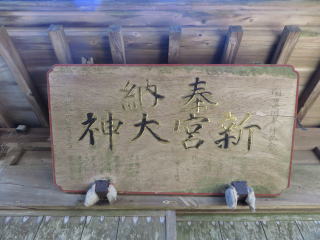 奉納
新宮大神